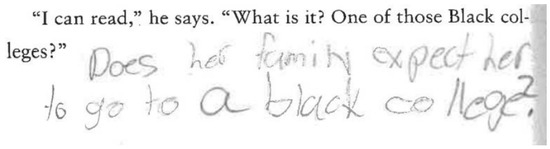 “I can read,” he says. “What is it? One of those Black col-
leges?”
Does her family expect her
to go to a black college?